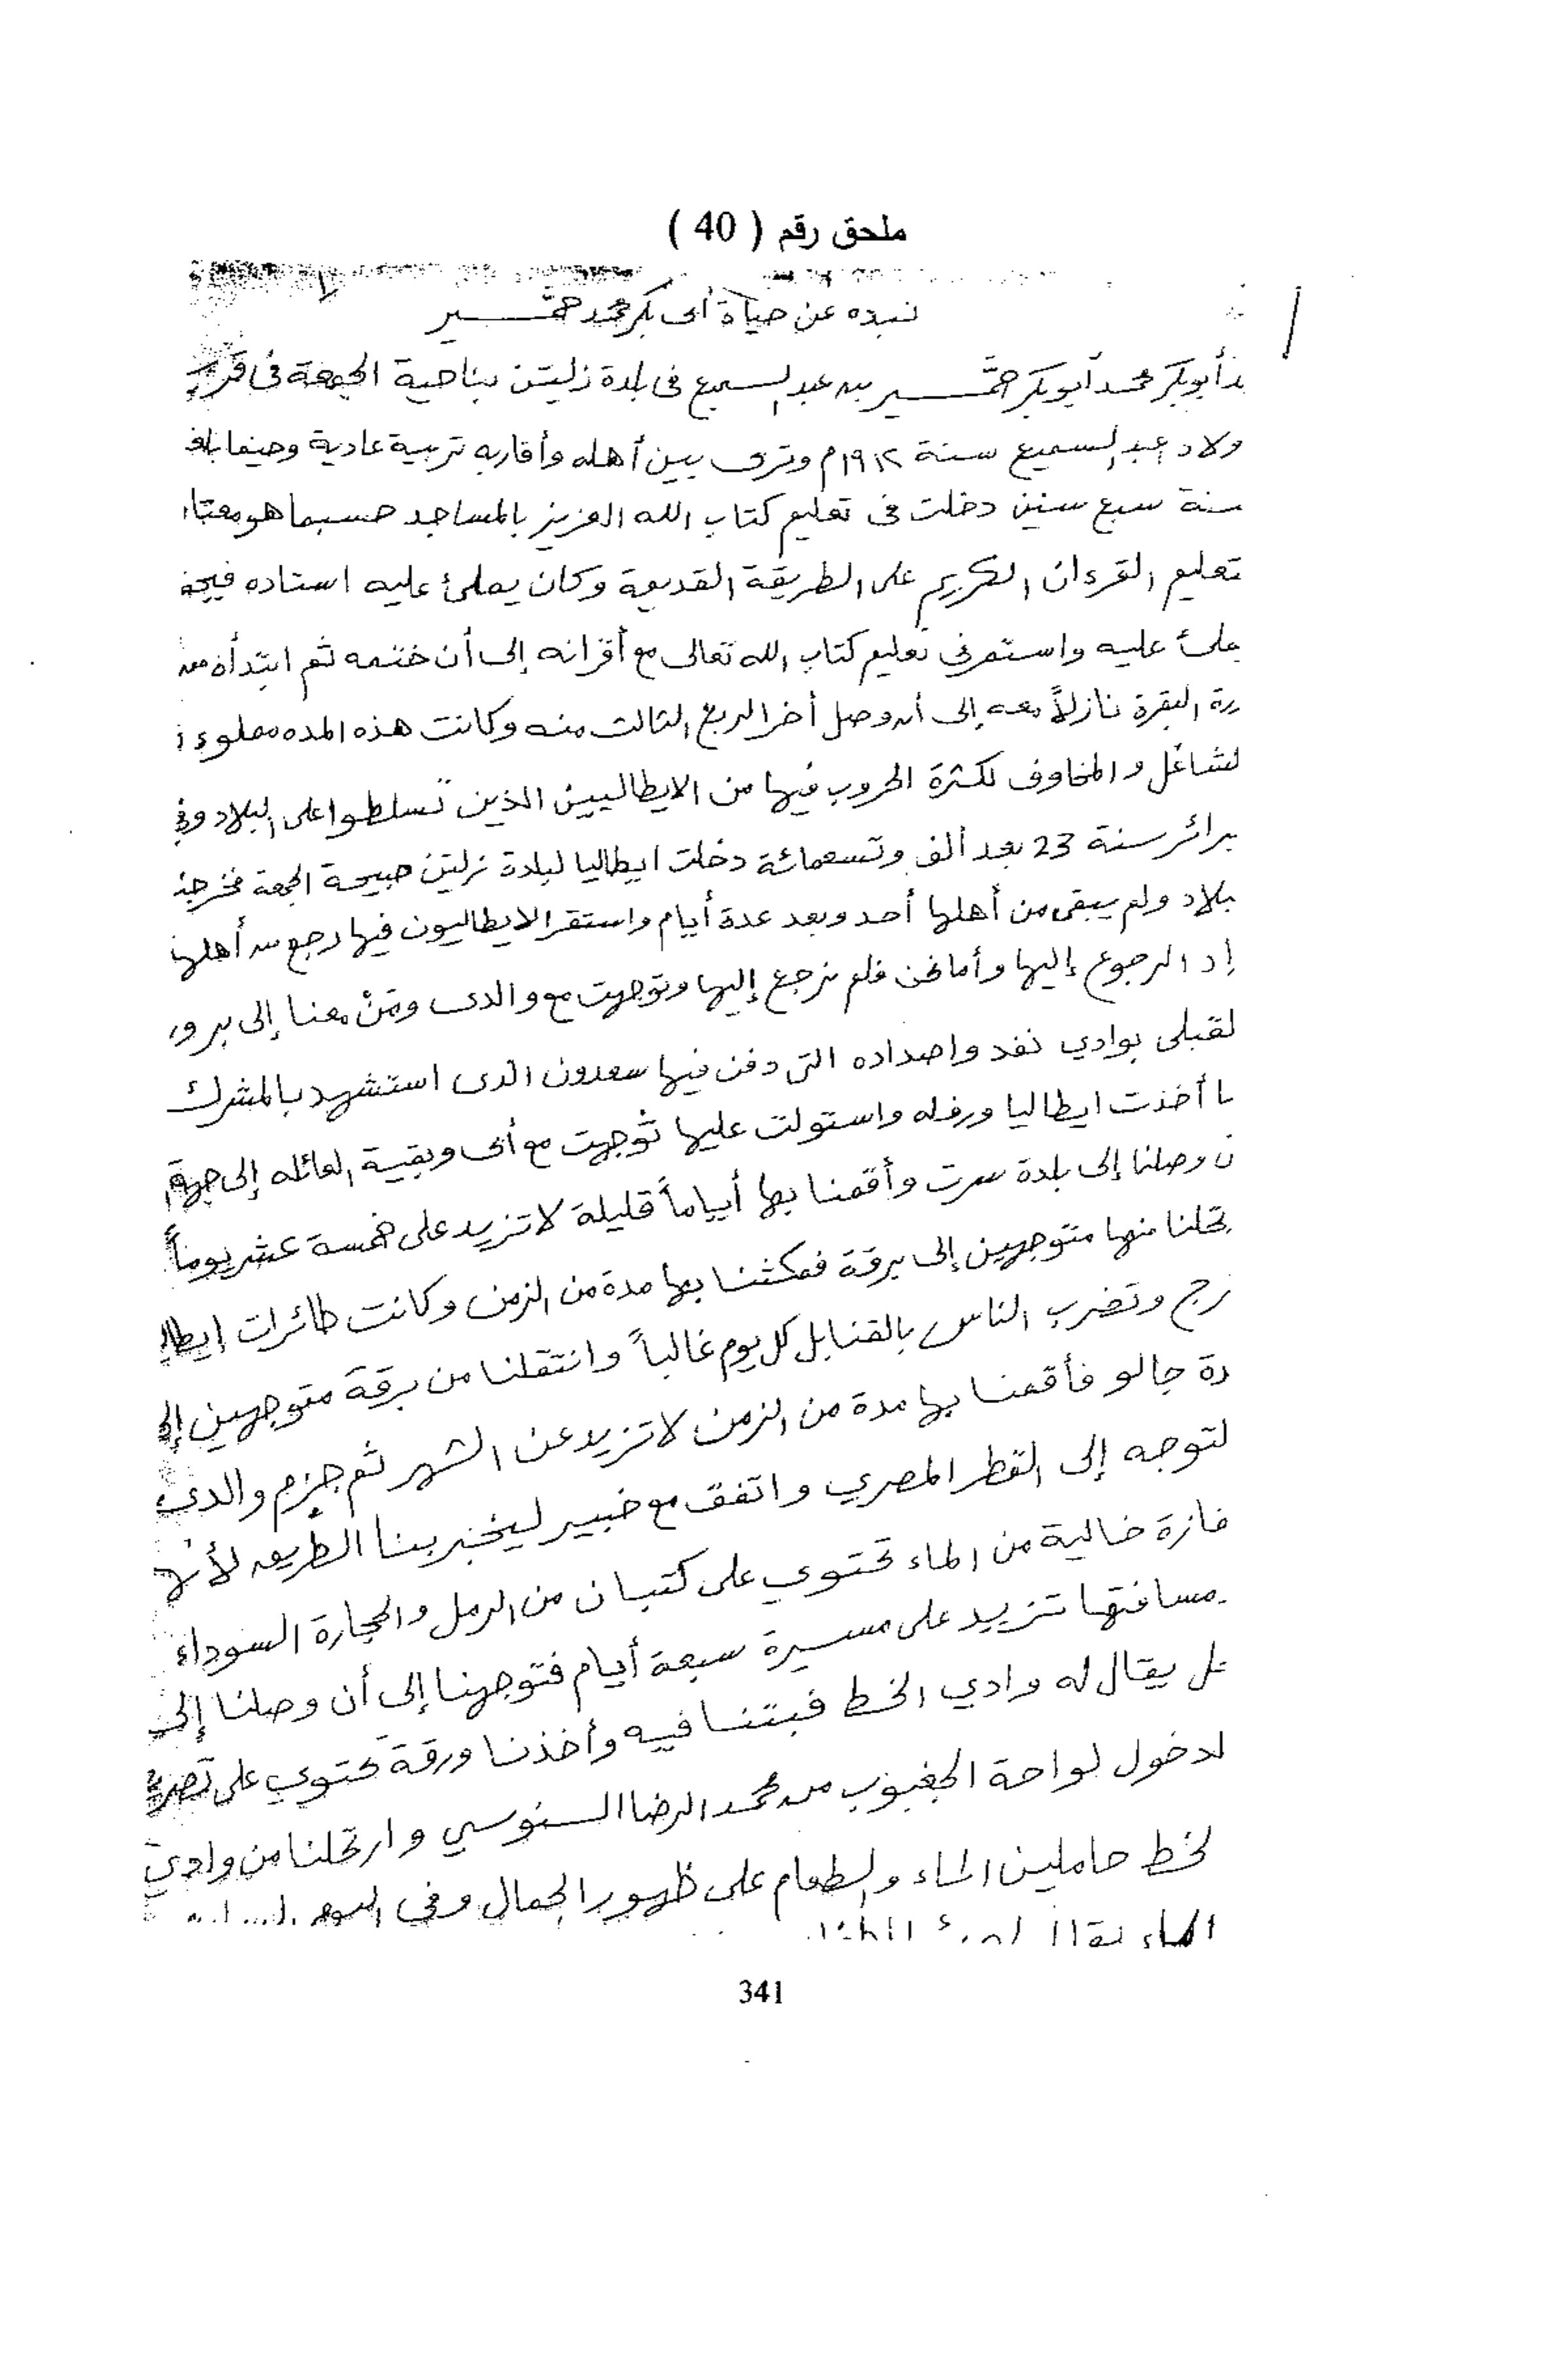 ملحق رقم ( 40 )
نبذه عن حياة أبى بكر محمد حمَّــير
أبوبكر محمد أبوبكر حمَّــير بن عبد السميع فى بلدة زليتن بناحية الجمعة فى
ولاد عبد السميع سنة ١٩١٢م وتربى بين أهله وأقاربه تربية عادية وحينما
سنة سبع سنين دخلت فى تعليم كتاب الله العزيز بالمساجد حسبما هو
تعليم القرءان الكريم على الطريقة القديمة وكان يملئ عليه استاده
عليه واستمر في تعليم كتاب الله تعالى مع أقرانه إلى أن ختمه ثم ابتدأه من
رة البقرة نازلاً معه إلى أن وصل أخر الربع الثالت منه وكانت هذه المده مملوءة
لشاغل والمخاوف لكثرة الحروب فيها من الايطاليين الذين تسلطوا على البلاد وفي
براير سنة 23 بعد ألف وتسعمائة دخلت ايطاليا لبلدة زليتن صبيحة الجمعة
بلاد ولم يبقى من أهلها أحد وبعد عدة أيام واستقر الايطاليون فيها رجع من أهلها
اد الرجوع إليها وأما نحن فلم نرجع إليها وتوجهت مع والدى ومَنْ معنا إلى
لقبلى بوادي نفد واصداده التى دفن فيها سعدون الدى استشهد بالمشرك
ا أخذت ايطاليا ورفله واستولت عليها توجهت مع أبى وبقية العائله إلى جهة
ن وصلنا إلى بلدة سرت وأقمنا بها أياماً قليلة لا تزيد على خمسة عشر يوماً
تحلنا منها متوجهين إلى برقة فمكثنا بها مدة من الزمن وكانت طائرات إيطا
رج وتضرب الناس بالقنابل كل يوم غالباً وانتقلنا من برقة متوجهين إلى
دة جالو فأقمنا بها مدة من الزمن لا تزيد عن الشهر ثم جزم والدى
لتوجه إلى القطر المصري واتفق مع خبير ليخبر بنا الطريق لأن
فازة خالية من الماء تحتوي على كتبان من الرمل والحجارة السوداء
مسافتها تزيد على مسيرة سبعة أيام فتوجهنا إلى أن وصلنا إلى
يقال له وادي الخط فبتنا فيه وأخذنا ورقة تحتوي على
لدخول لواحة الجغبوب من محمد الرضا السنوسي وارتحلنا من وادي
لخط حاملين الماء والطعام على ظهور الجمال وفى اليوم
الماء
341